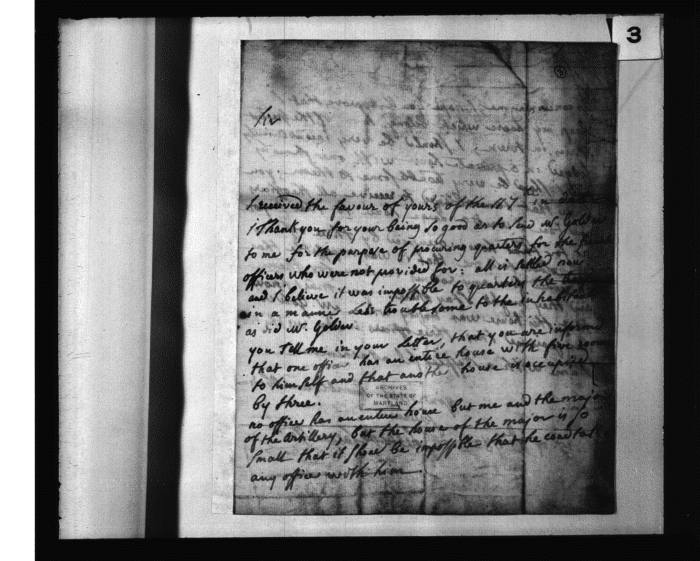 3
Sir
I received the favour of yours of the
I Thank you for your being so good as to send Mr. Golder
to me for the purpose of procuring quarters for the
officers who were not provided for: all is setled now
and I believe it was imposible to quarters the
in a manne Less troublesome to the inhabitants
as did Mr. Golder.
you Tell me in your Letter, that you are informed
that one office has an entire house with five rooms
to himself and that another house is occupied
by three.
ARCHIVES
OF THE STATE OF
MARYLAND
no office has an entire house but me and the major
of the Artillery, but the house of the major is so
Small that it Shoud be imposible that he coud
any office with him.